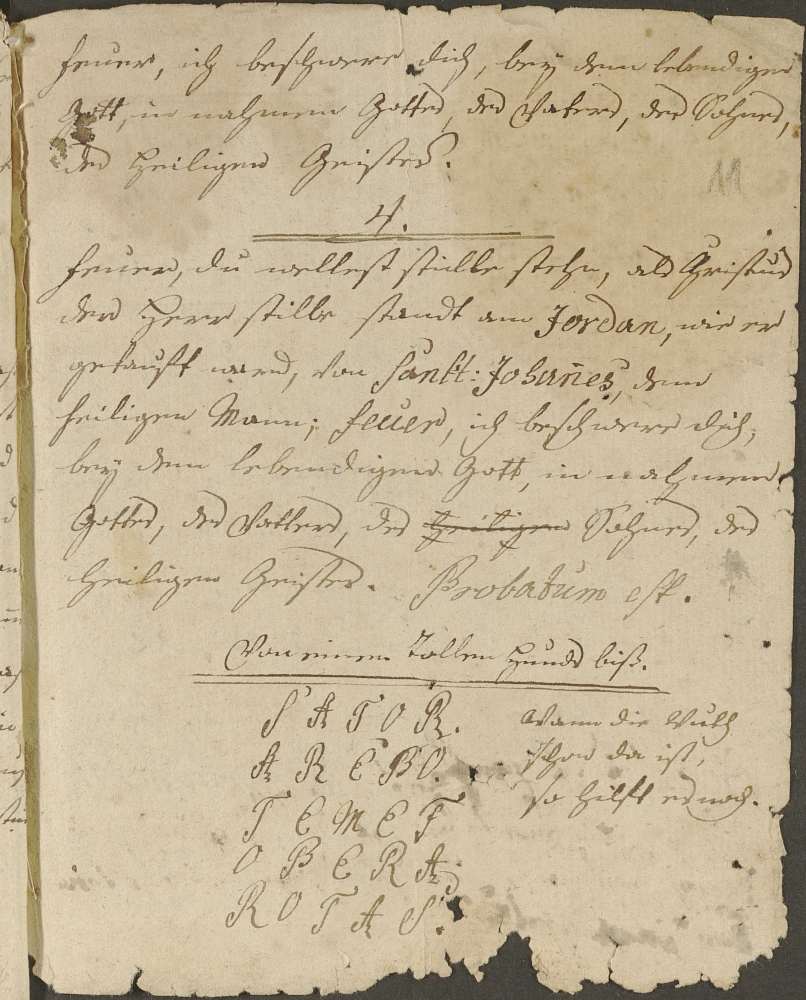 feuer, ich beschwere dich, bey dem lebendigen
Gott, in nahmen Gottes, des Vaters, des Sohnes,
des heiligen Geistes.
11
4.
feuer, du wollest stille stehn, als Christus
der Herr stille standt am Jordan, wie er
getauft ward, von Sankt: Johan̅es, dem
heiligen Mann; feuer, ich beschwere dich,
bey dem lebendigen Gott, in nahmen
Gottes, des Vatters, des heiligen Sohnes, des
heiligen Geistes. Probatum est.
Von einem Tollen Hunds biß.
S A T O R.
A R E B O.
T E M E T
O B E R A.
R O T A S.
Wann die Wuth
schon da ist,
so hilft es noch.